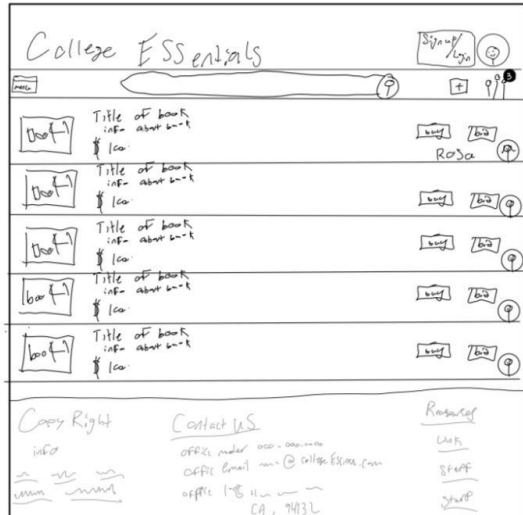 College ESSentials
Signup/
Login
menu
+
3
book
Title of book
info about book
$ 100
buy
bid
Rosa
book
Title of book
info about book
$ 100
buy
bid
book
Title of book
info about book
$ 100
buy
bid
book
Title of book
info about book
$ 100
buy
bid
book
Title of book
info about book
$ 100
buy
bid
Copy Right
info
Contact US
office number 000-000-0000
office Email @ college.Essens.com
office
CA, 94132
Resources
Link
Stuff
Stuff